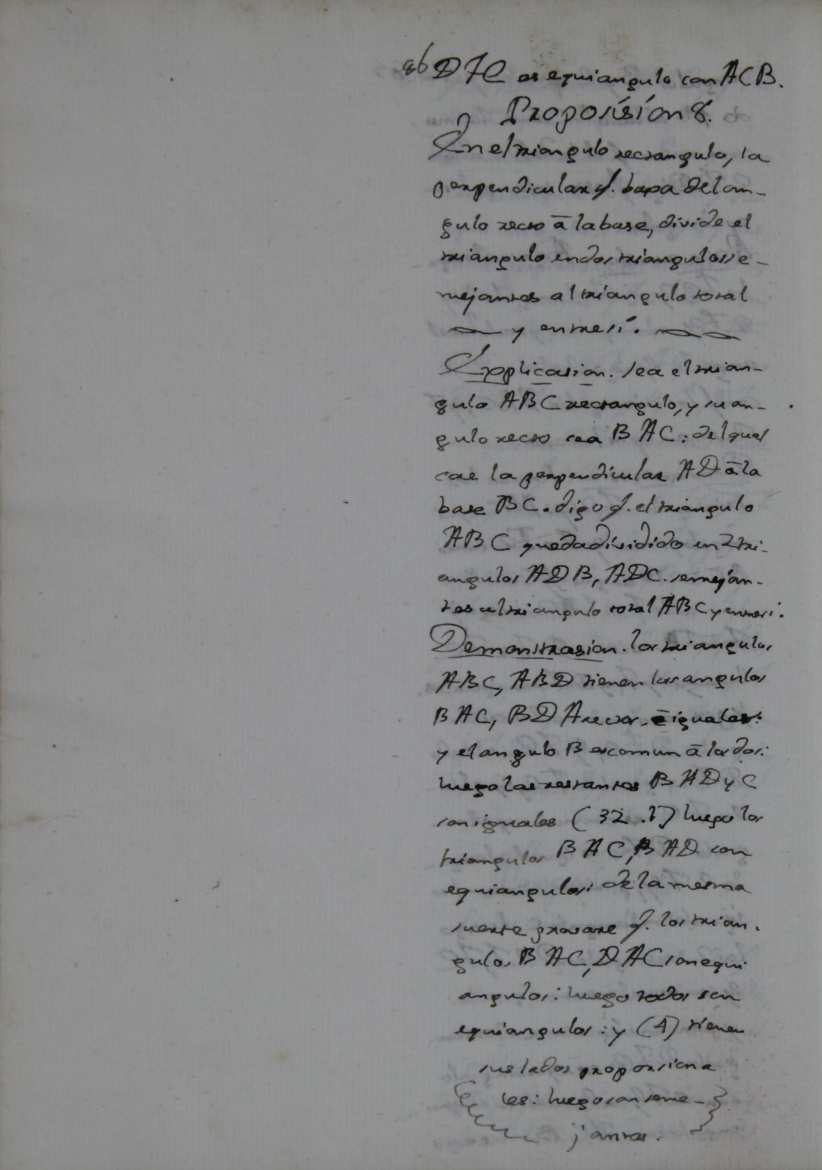 86 DFE es equiangulo con ACB.
Proposision 8.
En el triangulo rectangulo, la
perpendicular q. baxa del an-
gulo recto â la base, divide el
triangulo en dos triangulos se-
mejantes al triangulo total
y entre si.
Explicasion. sea el trian-
gulo ABC rectangulo, y su an-
gulo recto sea BAC: del qual
cae la perpendicular AD â la
base BC. digo q. el triangulo
ABC queda dividido en 2 tri-
angulos ADB, ADC. semejan-
tes al triangulo total ABC y entre si.
Demonstrasion. los triangulos
ABC, ABD tienen los angulos
BAC, BDA rectos. è iguales:
y el angulo B es comun â los dos:
luego los restantes BAD y C
son iguales (32.1) luego los
triangulos BAC, BAD son
equiangulos: de la mesma
suerte provare q. los trian.
gulos BAC, DAC son equi
angulos: luego todos son
equiangulos: y (4) tienen
sus lados proporsiona
les: luego son seme-
jantes.